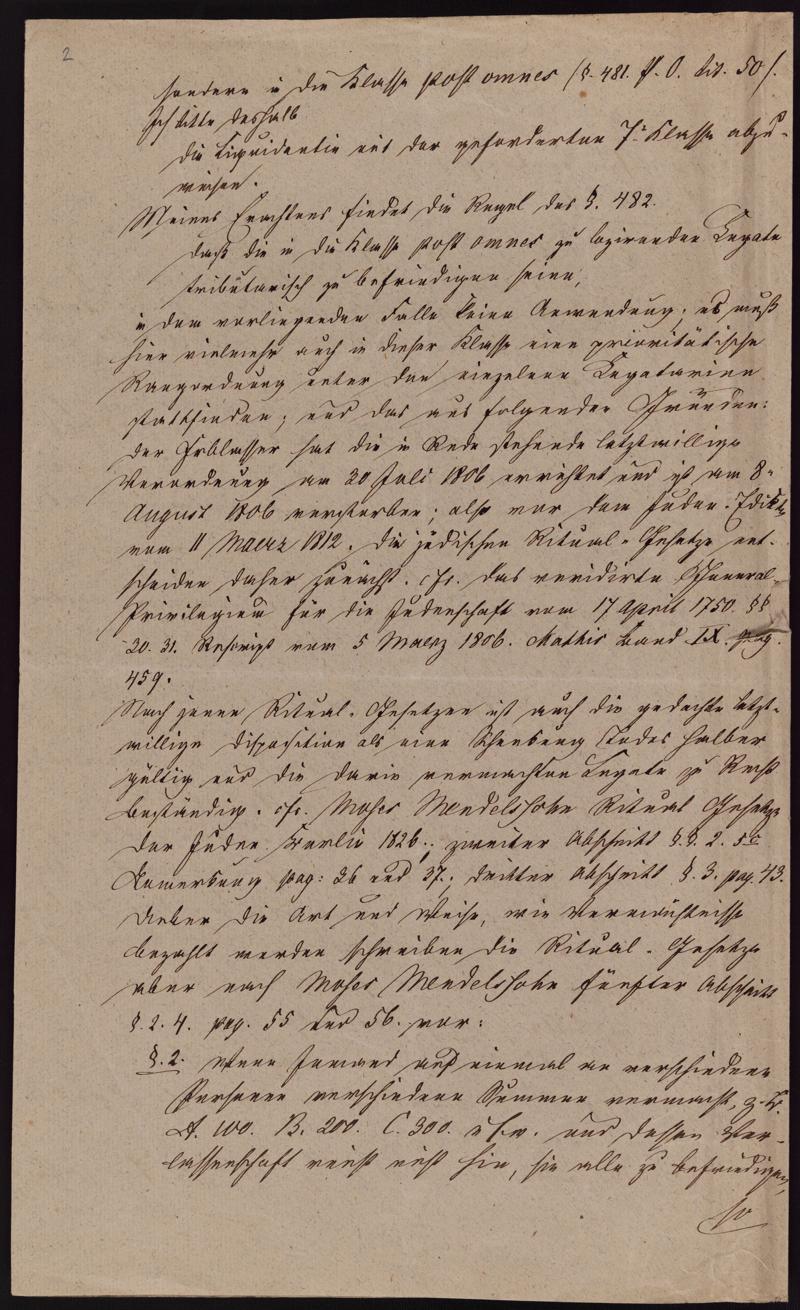 2
sondern in die Klasse post omnes (§. 481. P. O. tit. 50).
Ich bitte deshalb
die Liquidantin mit der geforderten 7t Klasse abzu-
weisen.
Meines Erachtens findet die Regel des §. 482.
daß die in die Klasse post omnes zu lozirenden Legate
tributarisch zu befriedigen seien,
in dem vorliegenden Falle keine Anwendung; es muß
hier vielmehr auch in dieser Klasse eine prioritätische
Rangordnung unter den einzelnen Legatarien
stattfinden; und das aus folgenden Gründen:
Der Erblasser hat die in Rede stehende letztwillige
Verordnung am 20 Juli 1806 errichtet und ist am 8n
August 1806 verstorben; also vor dem Juden-Edikte
vom 11 Maerz 1812. Die jüdischen Ritual-Gesetze ent-
scheiden daher zunächst. cfr. das revidirte General-
Privilegium für die Judenschaft vom 17 April 1750. §§
20. 31. Rescript vom 5 Maerz 1806. Mathis Band IX. pag.
459.
Nach jenen Ritual-Gesetzen ist auch die gedachte letzt-
willige Disposition als eine Schenkung Todes halber
gültig und die darin vermachten Legate zu Recht
beständig. cfr. Moses Mendelssohn Ritual Gesetze
der Juden Berlin 1826.; zweiter Abschnitt §.§. 2. 5
Anmerkung pag: 36 und 37.; dritter Abschnitt §. 3. pag. 43.
Ueber die Art und Weise, wie Vermächtnisse
bezahlt werden schreiben die Ritual-Gesetze
aber nach Moses Mendelssohn fünfter Abschnitt
§. 2. 4. pag. 55 und 56. vor:
§. 2. Wenn Jemand auf einmal an verschiedene
Personen verschiedene Summen vermacht, z. B.
A. 100. B. 200. C. 300. u. s. w. und dessen Ver-
lassenschaft reicht nicht hin, sie alle zu befriedigen,
so